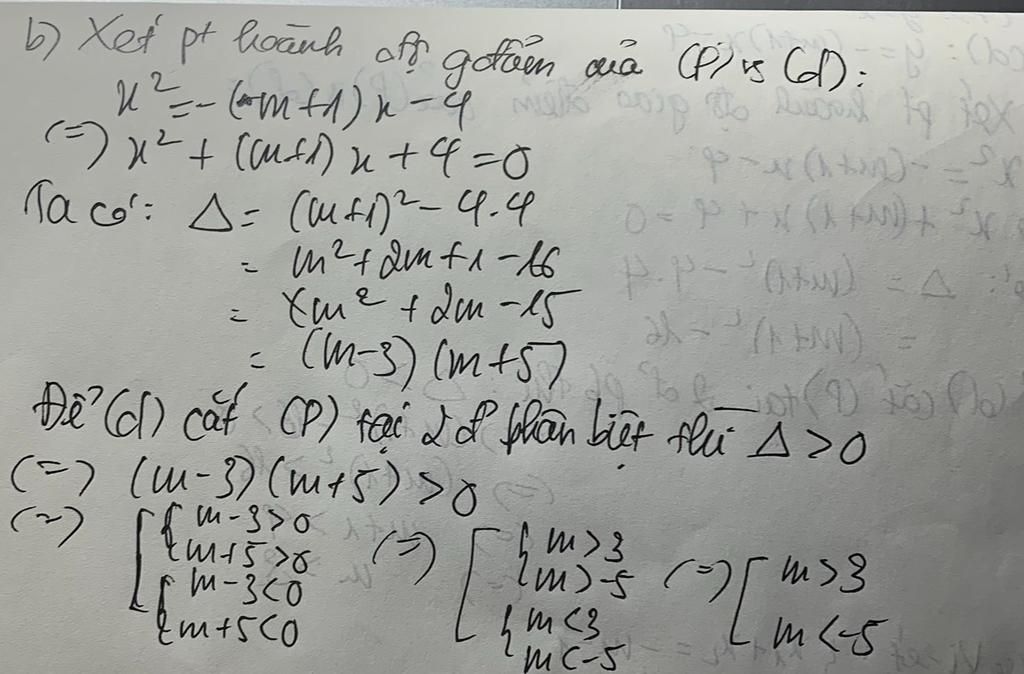 b) Xét pt hoành độ gđiểm của (P) vs (d):
x² = -(m+1)x - 4
(=) x² + (m+1)x + 4 = 0
Ta có: Δ = (m+1)² - 4.4
= m² + 2m + 1 - 16
= m² + 2m - 15
= (m-3)(m+5)
Để (d) cắt (P) tại 2 đ' phân biệt thì Δ > 0
(=) (m-3)(m+5) > 0
(=) [ { m-3>0 (=) [ { m>3 (=) [ m>3
{ m+5>0 { m>-5
{ m-3<0 { m<3 m<-5
{ m+5<0 m<-5